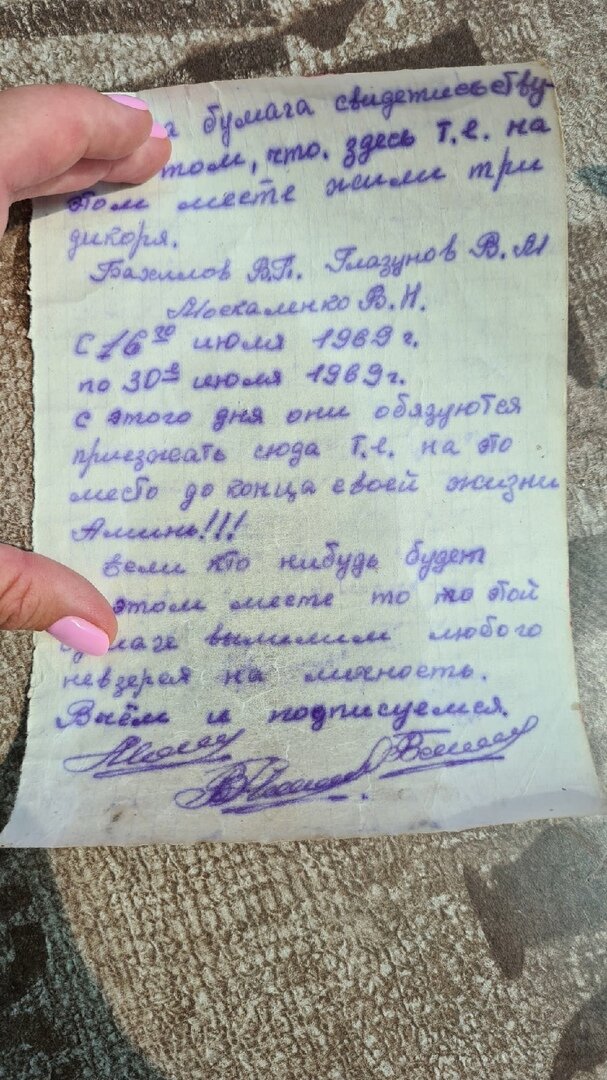 а бумага свидетисьству-
том, что. здесь т.е. на
этом месте жили три
дикоря.
Бахилов В.П. Глазунов В.М
Москаленко В.Н.
С 16го июля 1969 г.
по 30е июля 1969г.
с этого дня они обязуются
приезжать сюда т.е. на это
место до конца своей жизни
Аминь!!!
Если кто нибудь будет
этом месте то по этой
выселим любого
невзерая на личность.
Вчём и подписуемся.